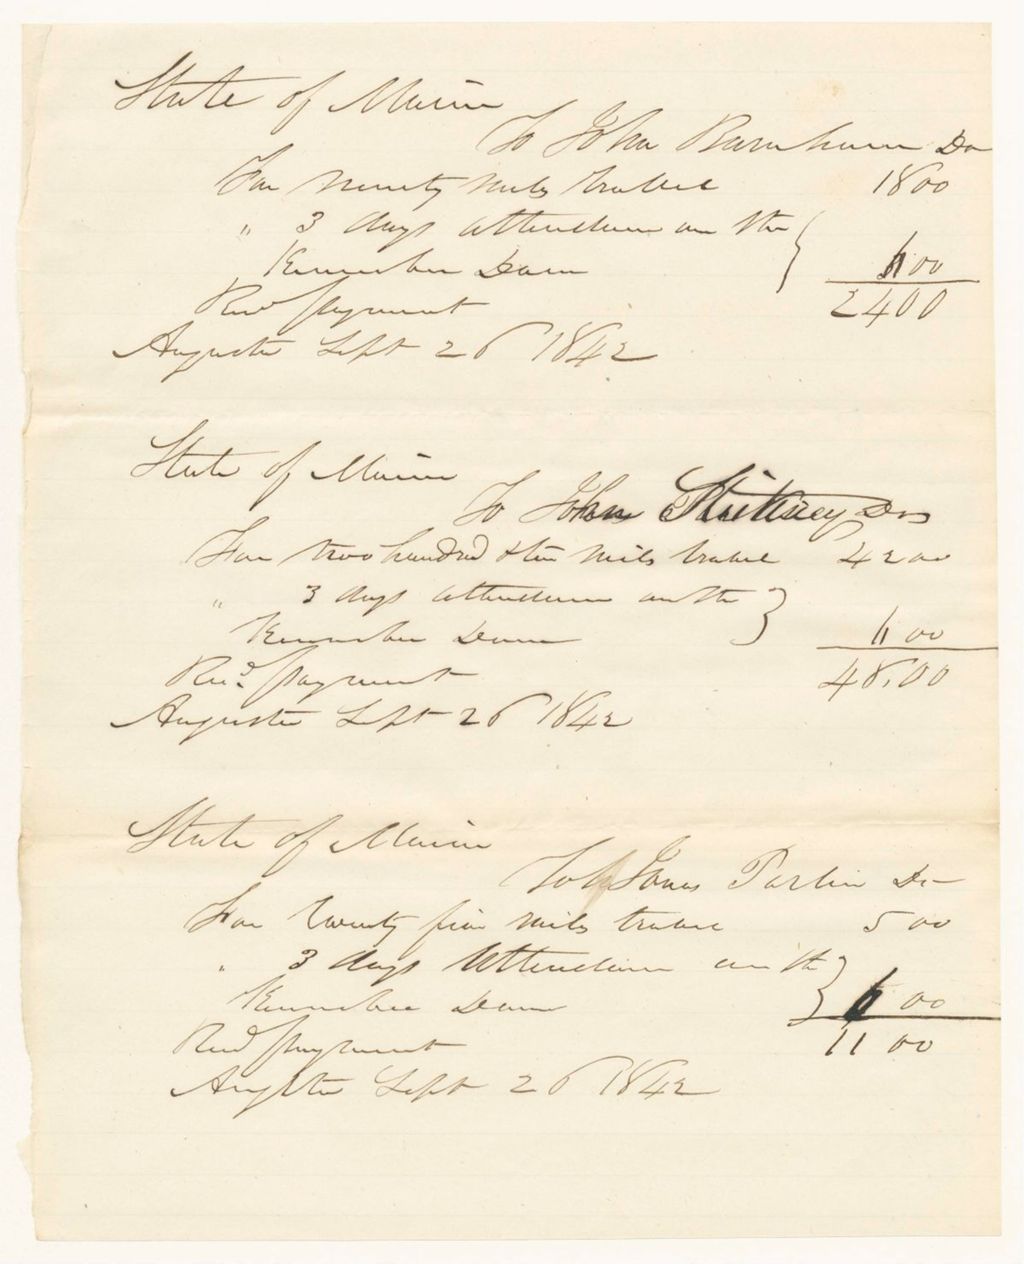 State of Maine
To John Burnham Dr
For ninety miles travel 18 00
" 3 days attendance on the
Kennebec Dam 6 00
Recd payment 24 00
Augusta Sept 26 1842
State of Maine
To John Stickney Dr
For two hundred & ten miles travel 42 00
" 3 days attendance on the
Kennebec Dam 6 00
Recd payment 48.00
Augusta Sept 26 1842
State of Maine
To Jonas Parlin Dr
For Twenty five miles travel 5 00
" 3 days Attendance on the
Kennebec Dam 6 00
Recd payment 11 00
Augusta Sept 26 1842